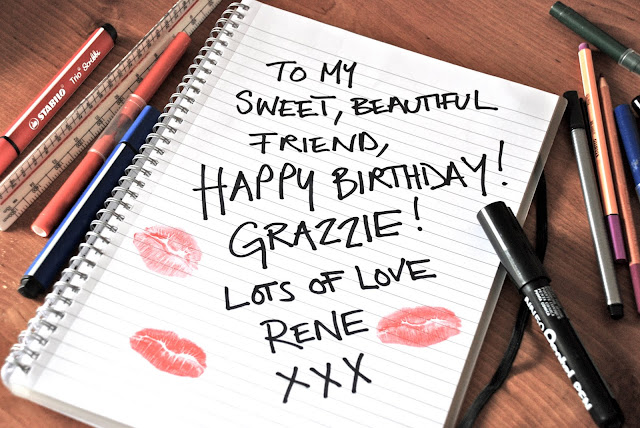 TO MY
SWEET, BEAUTIFUL
FRIEND,
HAPPY BIRTHDAY!
GRAZZIE!
LOTS OF LOVE
RENE
XXX
STABILO Trio Scribbi
PEN